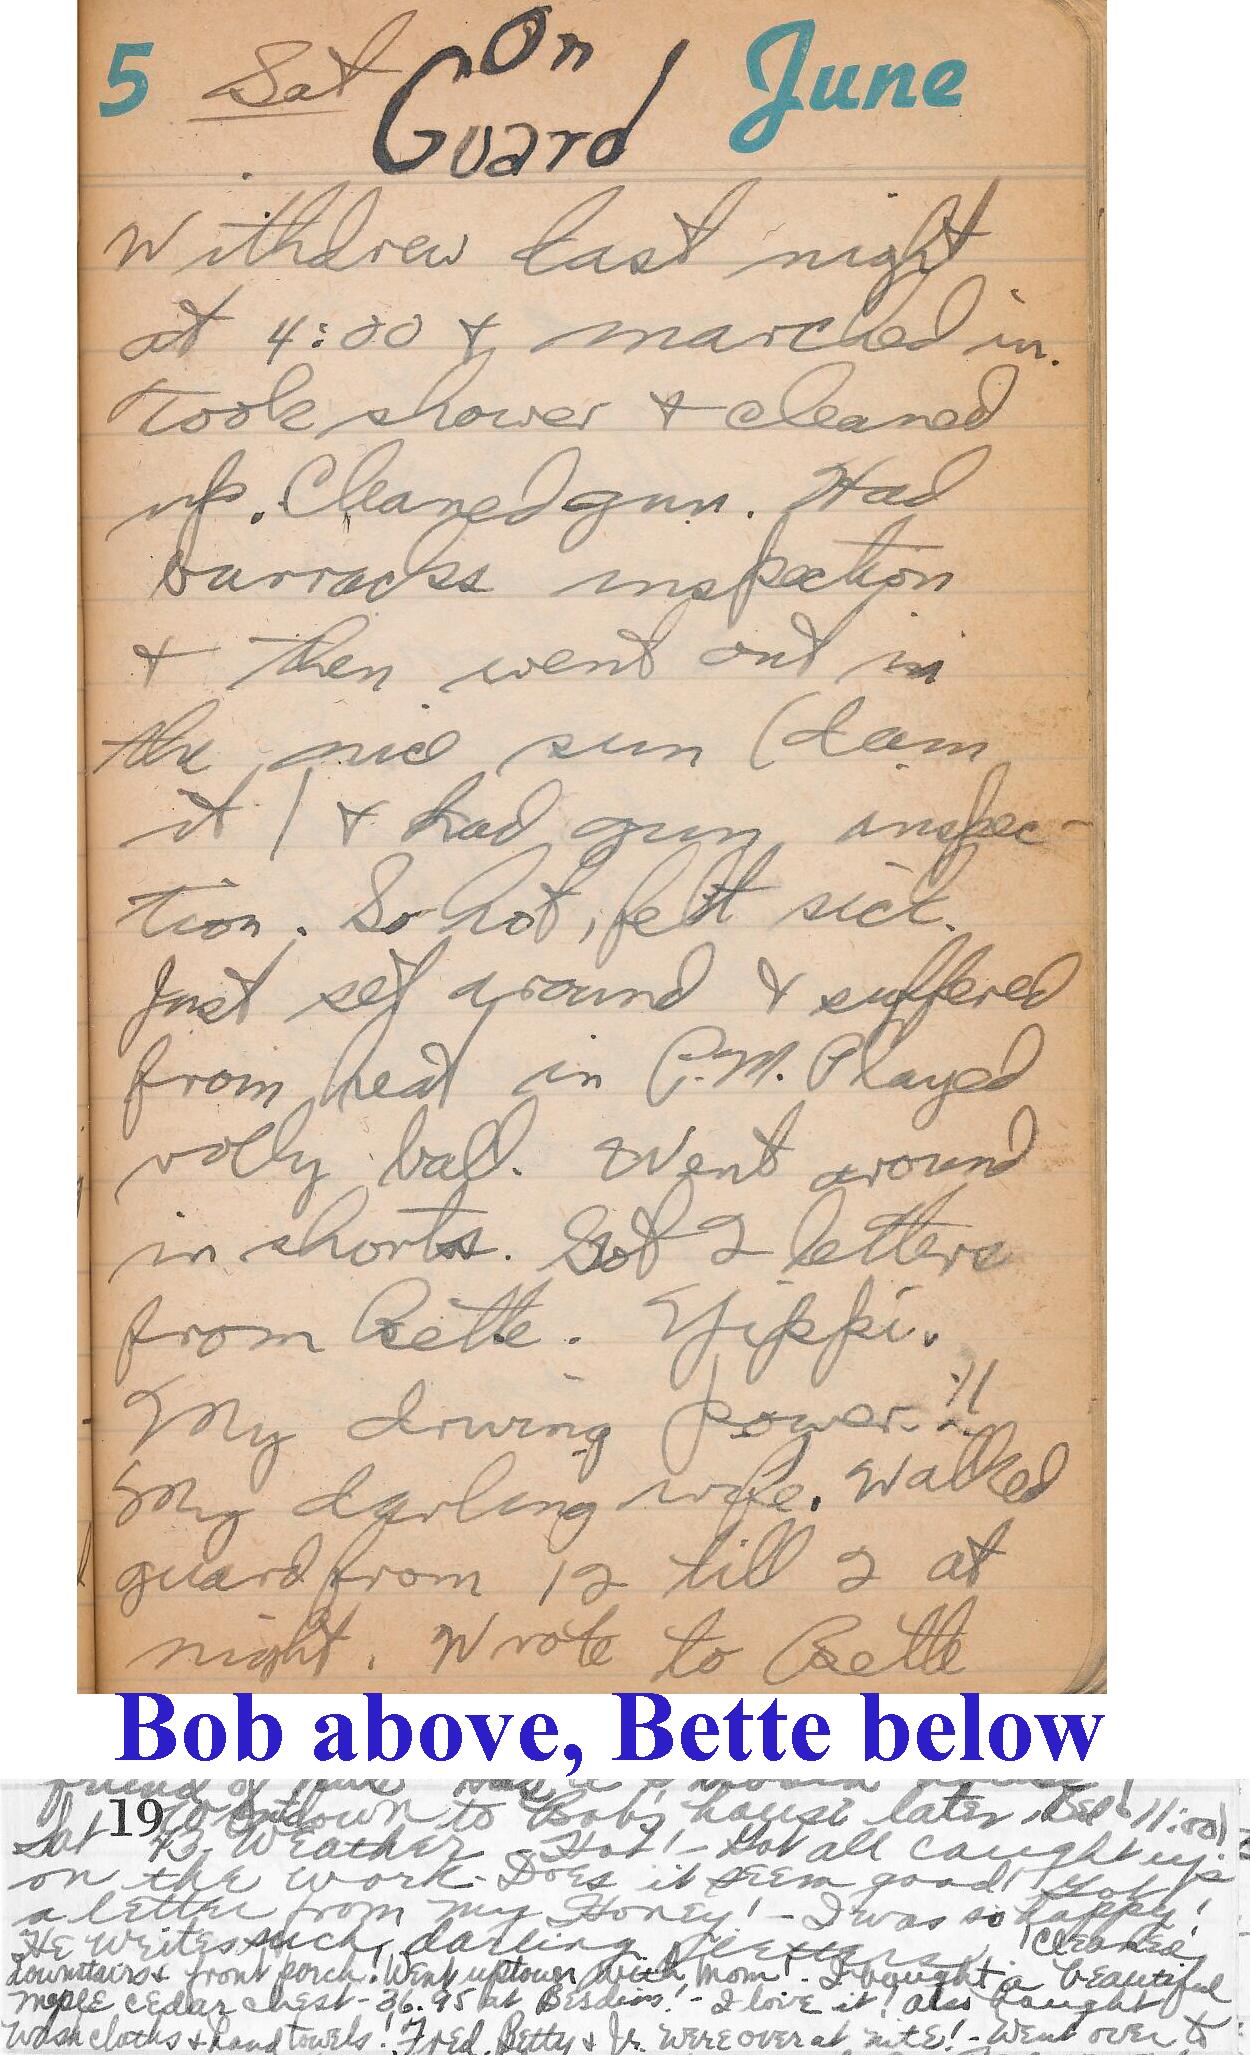 5 Sat On June
Guard
Withdrew last night
at 4:00 & marched in.
Took shower & cleaned
up. Cleaned gun. Had
barracks inspection
& then went out in
the nice sun (dam
it) & had gun inspec-
tion. So hot, felt sick.
Just set around & suffered
from heat in P.M. Played
volly ball. Went around
in shorts. Got 2 letters
from Bette. Yippi.
My driving power.!!
My darling wife. Walked
guard from 12 till 2 at
night. Wrote to Bette
Bob above, Bette below
friend of
19 Went down to Bob's house later. Bed 11:00!
Sat 43, Weather - Hot! - Got all caught up
on the work - Does it seem good! Got
a letter from my Honey! - I was so happy!
He writes such darling letters. Cleaned
downstairs & front porch! Went uptown with Mom! - I bought a beautiful
maple cedar chest - 36.95 at Besdins! - I love it! also bought
Wash cloths & hand towels! Fred, Betty & Jr. were over at nite! - Went over to